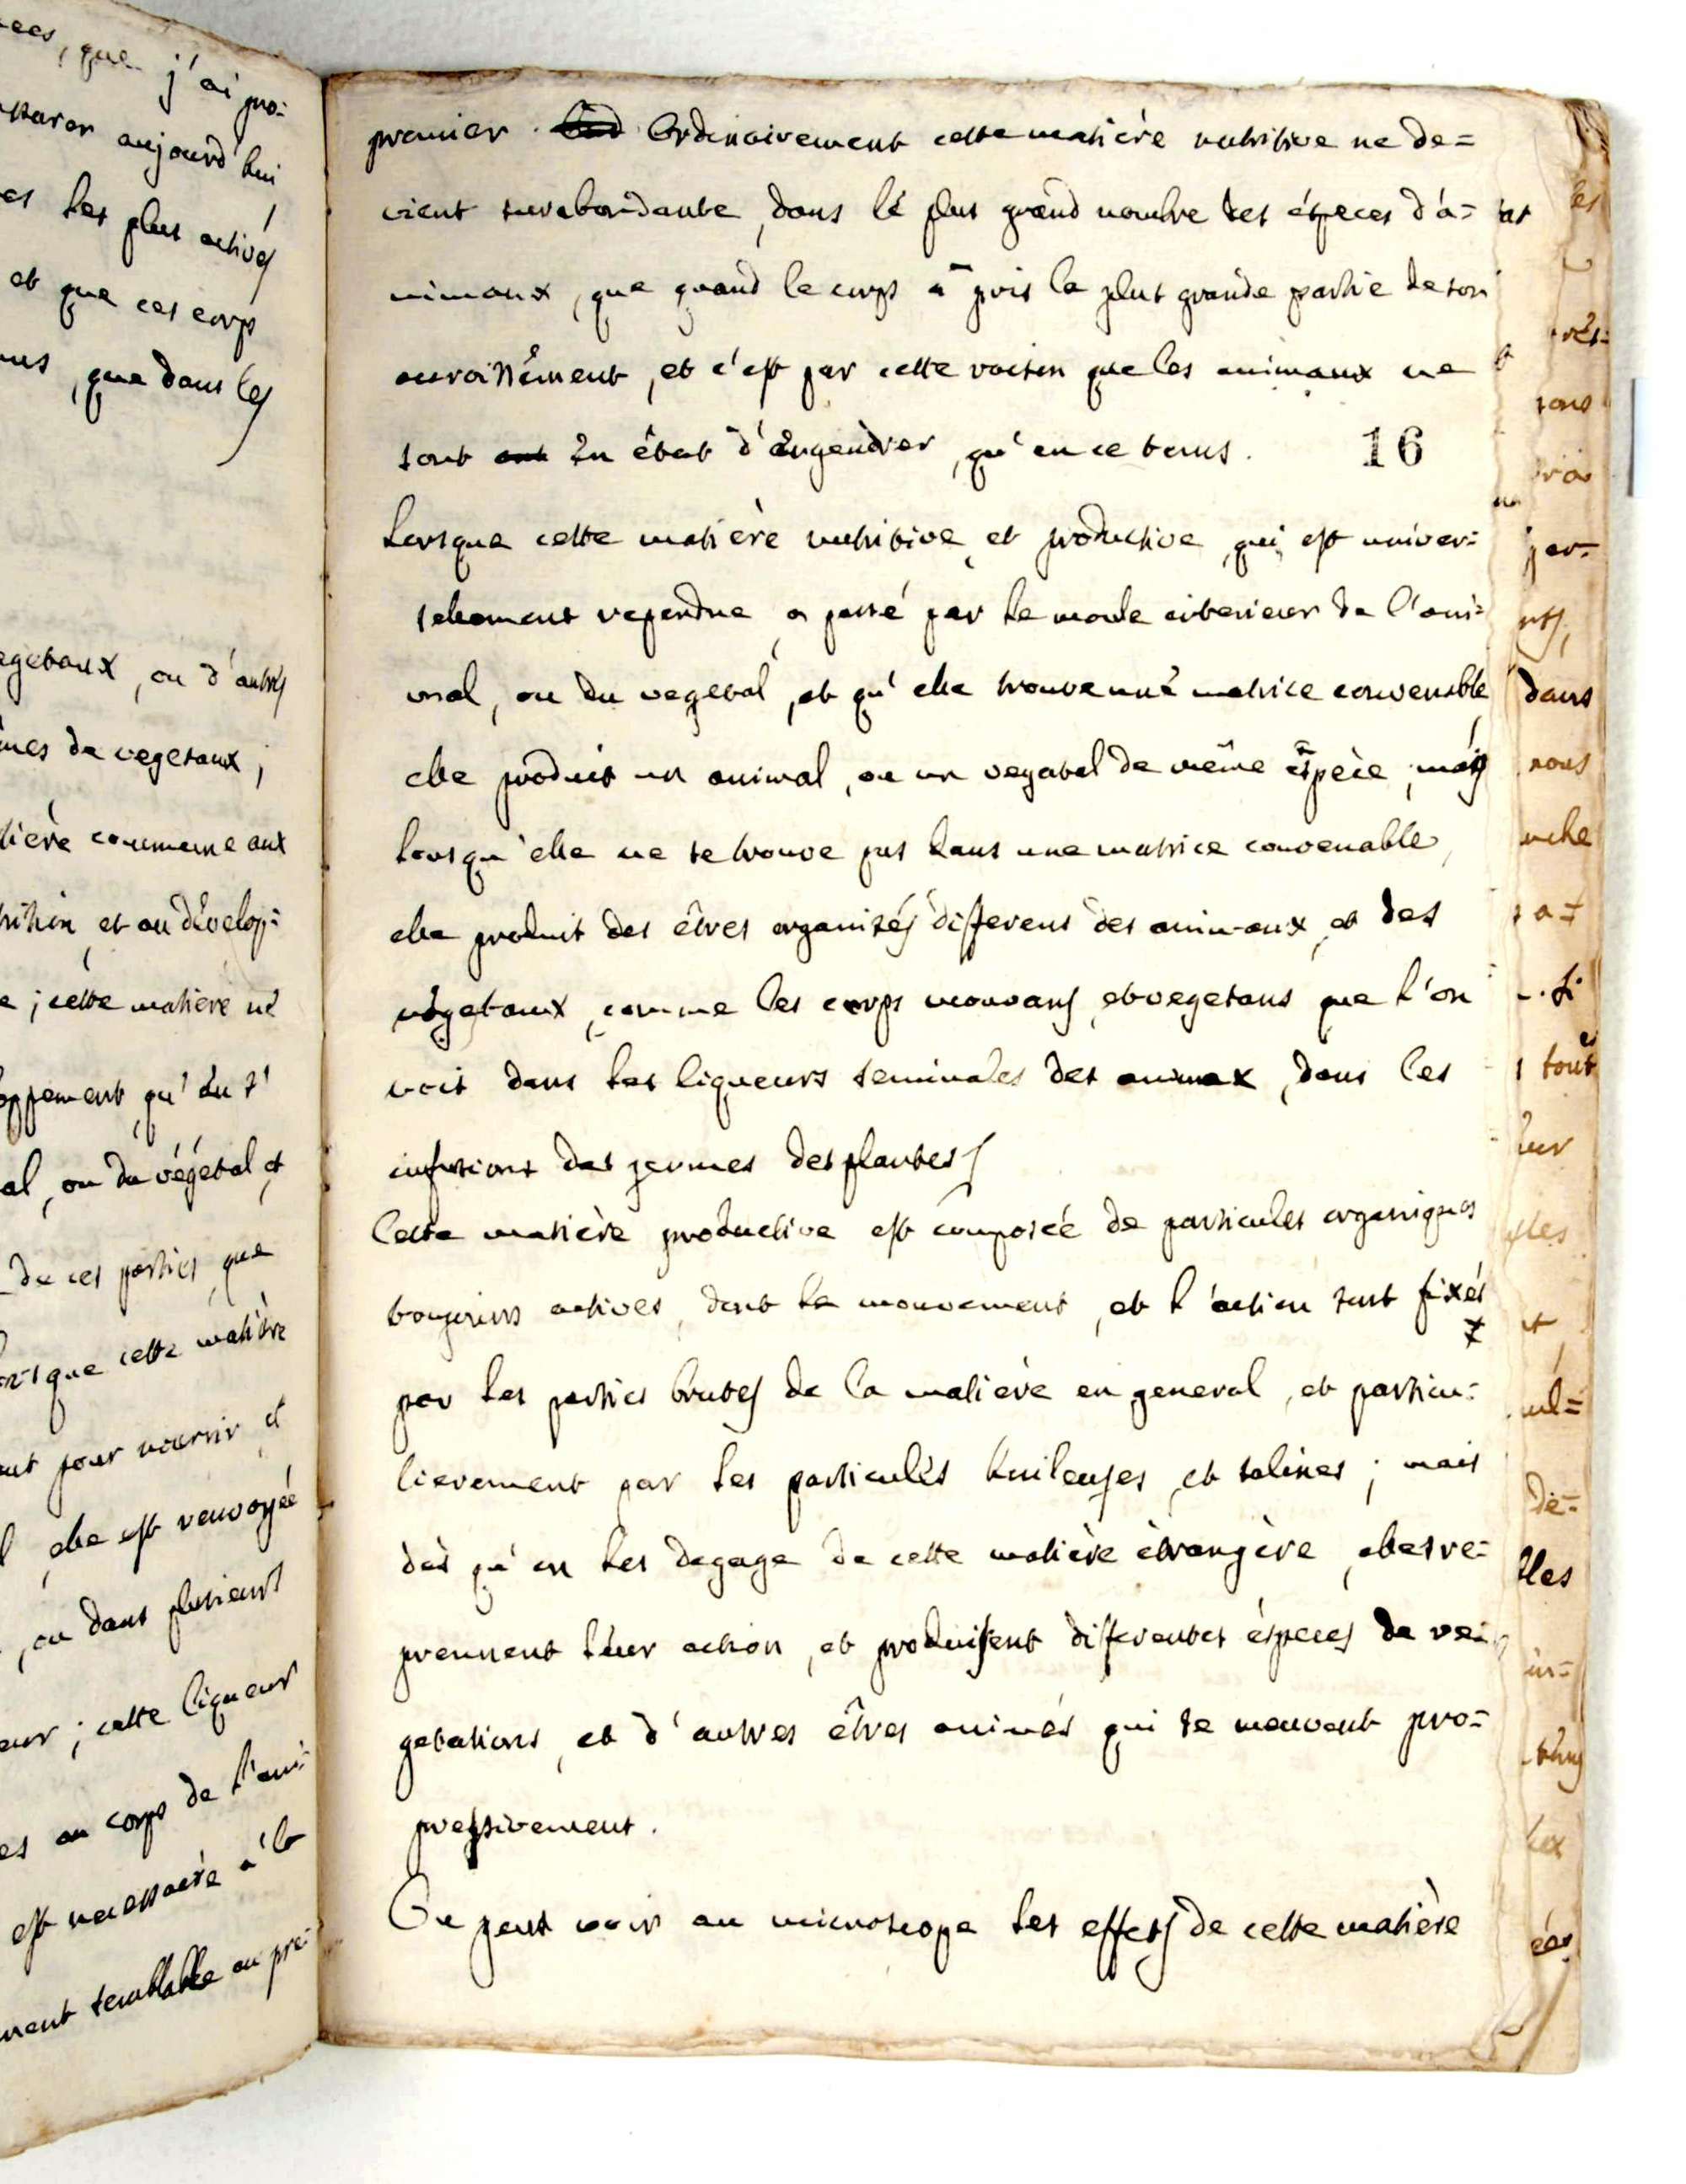 ees, que j'ai pro=
parer aujourd'hui
es les plus actives
et que ces corps
ous, que dans les
egetaux, ou d'autres
mes de vegetaux,
tière commune aux
trition, et au dévelop=
e ; cette matiere ne
oppement, qu'en s'
al, ou du végétal, et
de ces parties, que
lorsque cette matière
ut pour nourrir, et
l, elle est renvoyée
, ou dans plusieurs
eur ; cette liqueur
es au corps de l'ani=
est necessaire à la
ment semblable au pre=
premier. Ordinairement cette matière nutritive ne de=
vient surabondante, dans le plus grand nombre des éspeces d'a=
nimaux, que quand le corps a pris la plus grande partie de son
accroissement, et c'est par cette raison que les animaux ne
sont en état d'engendrer, qu'en ce tems.
16
Lorsque cette matière nutritive, et productive, qui est univer=
sellement rependue, a passé par le moule interieur de l'ani=
mal, ou du vegetal, et qu'elle trouve une matrice convenable
elle produit un animal, ou un vegatal de même éspèce ; mais
lorsqu'elle ne se trouve pas dans une matrice convenable,
elle produit des êtres organisés differens des animaux, et des
végetaux, comme les corps mouvans, et vegetans que l'on
voit dans les liqueurs seminales des animax, dans les
infusions des germes des plantes
Cette matière productive est composée de particules organiques
toujours actives, dont le mouvement, et l'action sont fixés
par les parties brutes de la matière en general, et particu=
lierement par les particulès huileuses, et salines ; mais
dès qu'on les degage de cette matière étrangère, elles re=
prennent leur action, et produisent differentes éspeces de ve=
getations, et d'autres êtres animés qui se meuvent pro=
gressivement.
On peut voir au microscope les effets de cette matière
dans
nous
tout